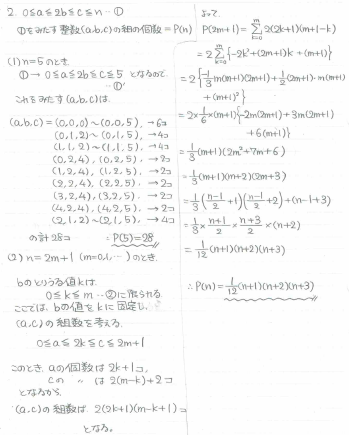 2. 0≦a≦2b≦c≦n …①
①をみたす整数(a,b,c)の組の個数=P(n)
(1) n=5のとき
①→ 0≦a≦2b≦c≦5 となるので
…①'
これをみたす(a,b,c)は
(a,b,c)=(0,0,0)〜(0,0,5), →6コ
(0,1,2)〜(0,1,5), →4コ
(1,1,2)〜(1,1,5), →4コ
(0,2,4), (0,2,5), →2コ
(1,2,4), (1,2,5), →2コ
(2,2,4), (2,2,5), →2コ
(3,2,4), (3,2,5), →2コ
(4,2,4), (4,2,5), →2コ
(2,1,2)〜(2,1,5), →4コ
の計28コ ∴P(5)=28
(2) n=2m+1 (m=0,1,…) のとき
bのとりうる値kは
0≦k≦m …②に限られる
ここでは、bの値をkに固定し、
(a,c)の組数を考える。
0≦a≦2k≦c≦2m+1
このとき、aの個数は2k+1コ。
cの 〃 は 2(m-k)+2コ
となるから
(a,c)の組数は、2(2k+1)(m-k+1)コ
となる。
よって
P(2m+1) = Σ_{k=0}^{m} 2(2k+1)(m+1-k)
= 2Σ_{k=0}^{m} {-2k²+(2m+1)k+(m+1)}
= 2{-1/3 m(m+1)(2m+1) + 1/2 (2m+1)·m(m+1)
+(m+1)²}
= 2×1/6×(m+1){-2m(2m+1)+3m(2m+1)
+6(m+1)}
= 1/3 (m+1)(2m²+7m+6)
= 1/3 (m+1)(m+2)(2m+3)
= 1/3 ((n-1)/2 +1)((n-1)/2 +2)(n-1+3)
= 1/3 × (n+1)/2 × (n+3)/2 × (n+2)
= 1/12 (n+1)(n+2)(n+3)
∴ P(n) = 1/12 (n+1)(n+2)(n+3)